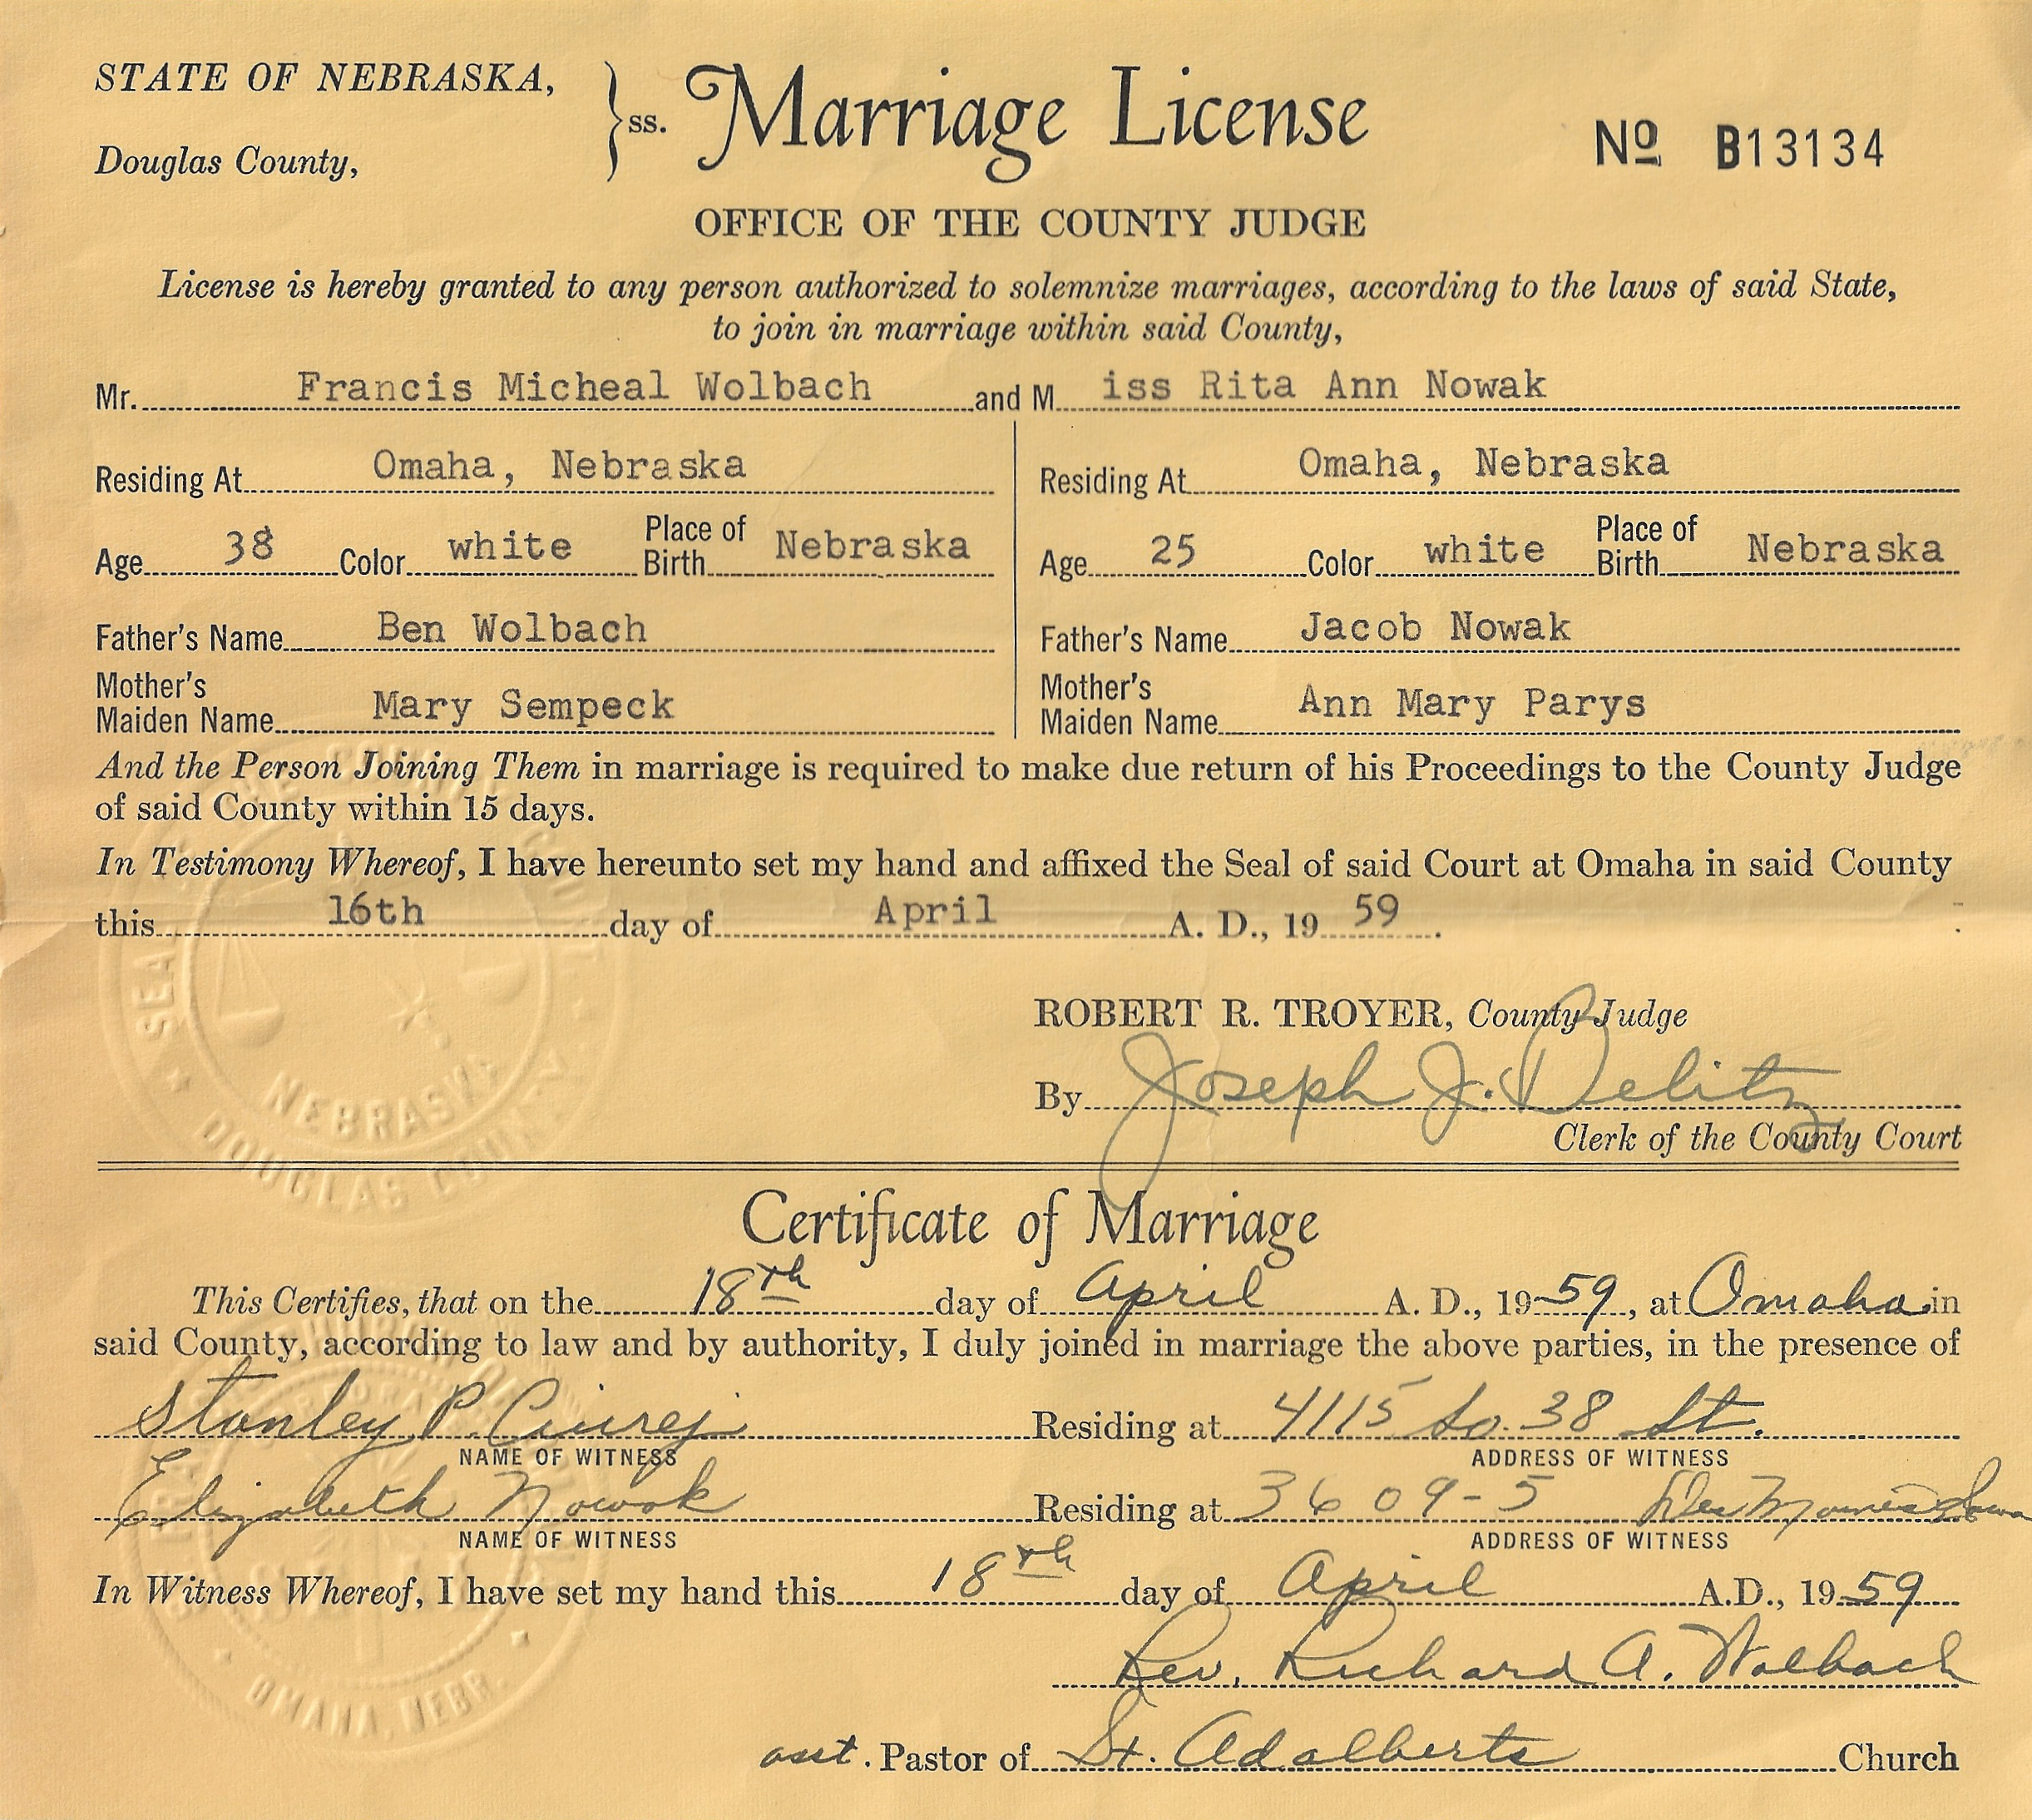 STATE OF NEBRASKA,
Douglas County,
} ss.
Marriage License
Nº B13134
OFFICE OF THE COUNTY JUDGE
License is hereby granted to any person authorized to solemnize marriages, according to the laws of said State,
to join in marriage within said County,
Mr. Francis Micheal Wolbach and M iss Rita Ann Nowak
Residing At Omaha, Nebraska Residing At Omaha, Nebraska
Age 38 Color white Place of Birth Nebraska Age 25 Color white Place of Birth Nebraska
Father's Name Ben Wolbach Father's Name Jacob Nowak
Mother's Maiden Name Mary Sempeck Mother's Maiden Name Ann Mary Parys
And the Person Joining Them in marriage is required to make due return of his Proceedings to the County Judge
of said County within 15 days.
In Testimony Whereof, I have hereunto set my hand and affixed the Seal of said Court at Omaha in said County
this 16th day of April A. D., 19 59.
ROBERT R. TROYER, County Judge
By Joseph J. Delitz
Clerk of the County Court
NEBRASKA
DOUGLAS COUNTY
Certificate of Marriage
This Certifies, that on the 18th day of April A. D., 19 59, at Omaha in
said County, according to law and by authority, I duly joined in marriage the above parties, in the presence of
Stanley P. Residing at 4115 So. 38 St.
NAME OF WITNESS ADDRESS OF WITNESS
Elizabeth Nowak Residing at 3609-5 Des Moines Iowa
NAME OF WITNESS ADDRESS OF WITNESS
In Witness Whereof, I have set my hand this 18th day of April A.D., 19 59
Rev. Richard A. Wolbach
asst. Pastor of St. Adalberts Church
OMAHA, NEBR.